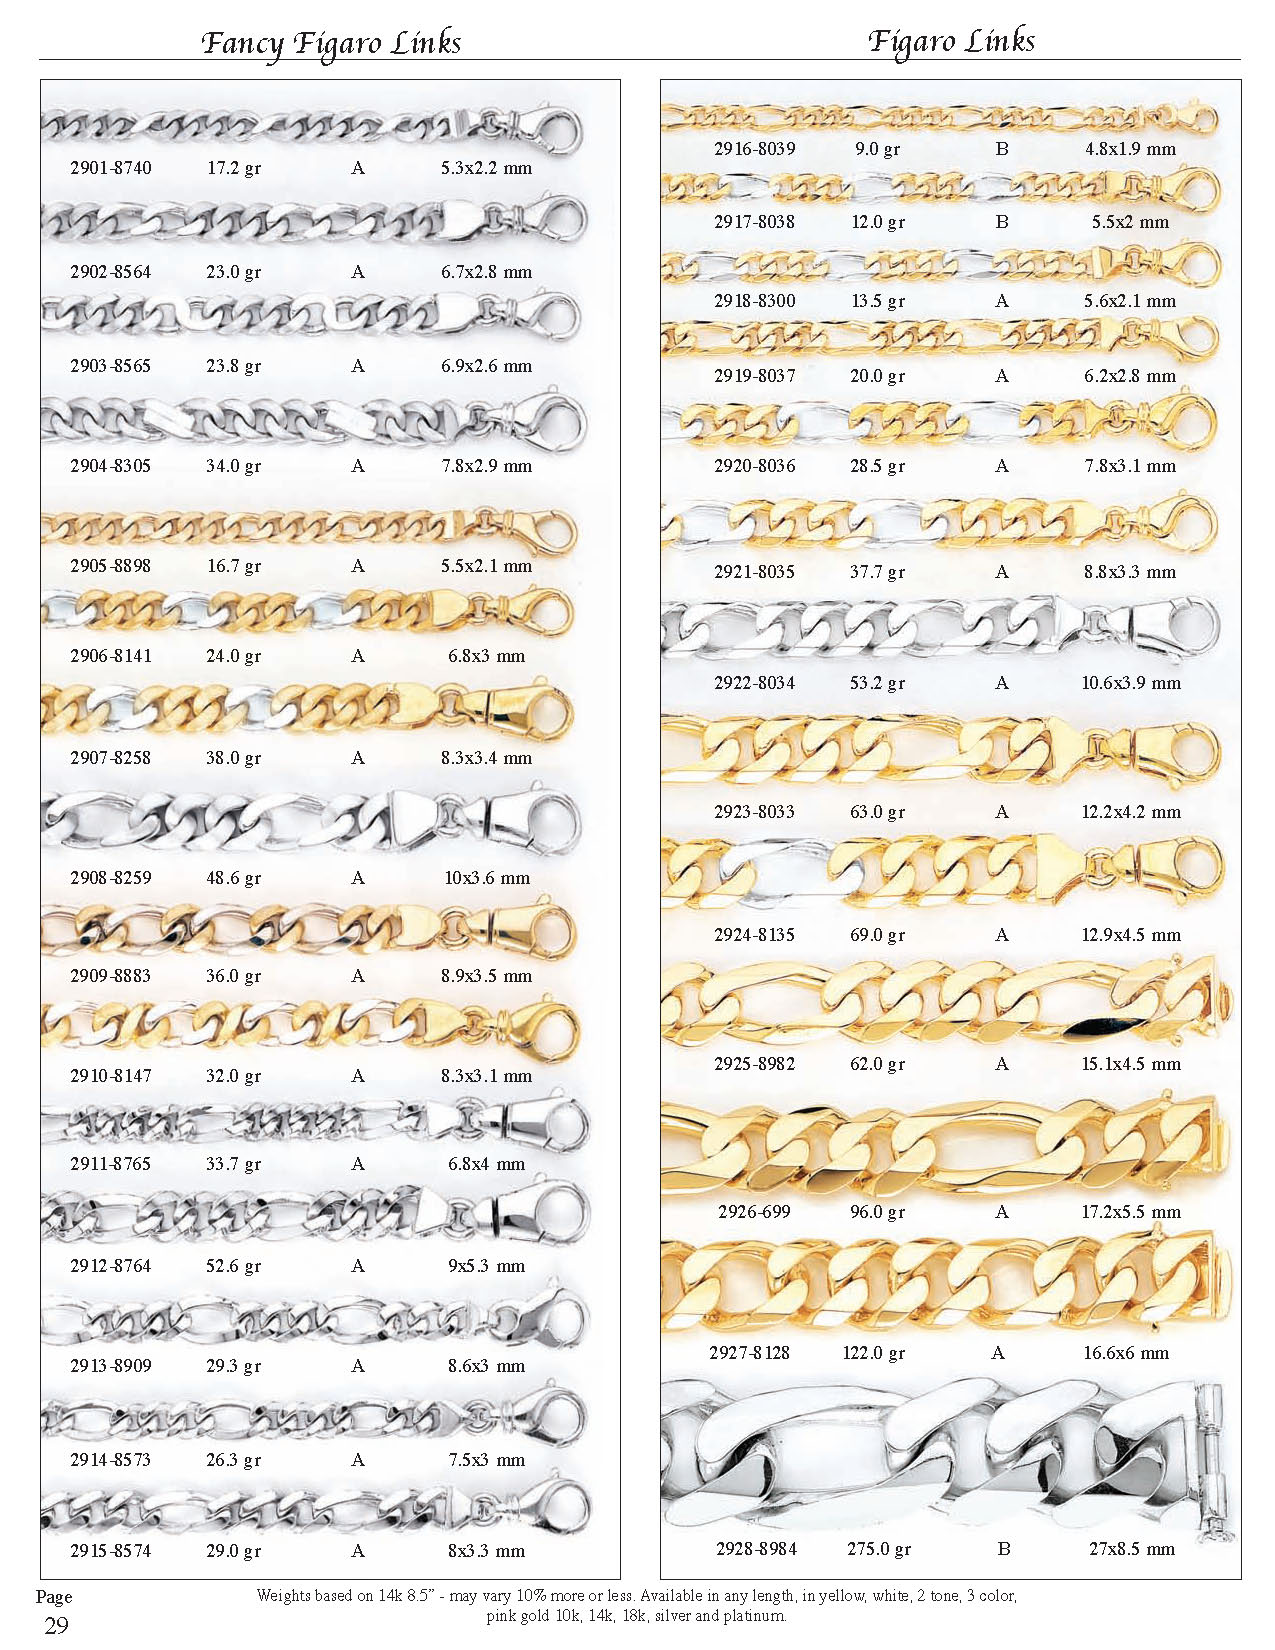 Fancy Figaro Links
2901-8740 17.2 gr A 5.3x2.2 mm
2902-8564 23.0 gr A 6.7x2.8 mm
2903-8565 23.8 gr A 6.9x2.6 mm
2904-8305 34.0 gr A 7.8x2.9 mm
2905-8898 16.7 gr A 5.5x2.1 mm
2906-8141 24.0 gr A 6.8x3 mm
2907-8258 38.0 gr A 8.3x3.4 mm
2908-8259 48.6 gr A 10x3.6 mm
2909-8883 36.0 gr A 8.9x3.5 mm
2910-8147 32.0 gr A 8.3x3.1 mm
2911-8765 33.7 gr A 6.8x4 mm
2912-8764 52.6 gr A 9x5.3 mm
2913-8909 29.3 gr A 8.6x3 mm
2914-8573 26.3 gr A 7.5x3 mm
2915-8574 29.0 gr A 8x3.3 mm
Figaro Links
2916-8039 9.0 gr B 4.8x1.9 mm
2917-8038 12.0 gr B 5.5x2 mm
2918-8300 13.5 gr A 5.6x2.1 mm
2919-8037 20.0 gr A 6.2x2.8 mm
2920-8036 28.5 gr A 7.8x3.1 mm
2921-8035 37.7 gr A 8.8x3.3 mm
2922-8034 53.2 gr A 10.6x3.9 mm
2923-8033 63.0 gr A 12.2x4.2 mm
2924-8135 69.0 gr A 12.9x4.5 mm
2925-8982 62.0 gr A 15.1x4.5 mm
2926-699 96.0 gr A 17.2x5.5 mm
2927-8128 122.0 gr A 16.6x6 mm
2928-8984 275.0 gr B 27x8.5 mm
Page
29
Weights based on 14k 8.5” - may vary 10% more or less. Available in any length, in yellow, white, 2 tone, 3 color,
pink gold 10k, 14k, 18k, silver and platinum.